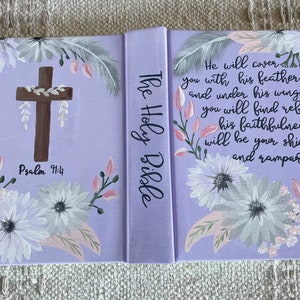 Psalm 91:4
The Holy Bible
He will cover
you with his feathers
and under his wings
you will find
his faithfulness
will be your
and rampart